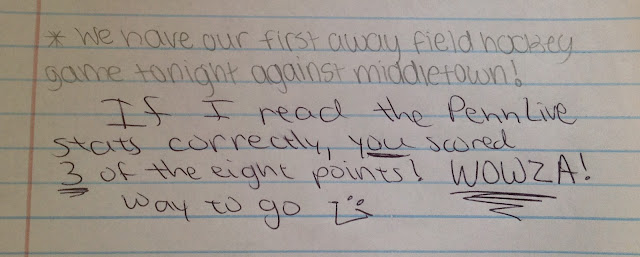 * we have our first away field hockey
game tonight against middletown!
If I read the PennLive
stats correctly, you scored
3 of the eight points! WOWZA!
way to go